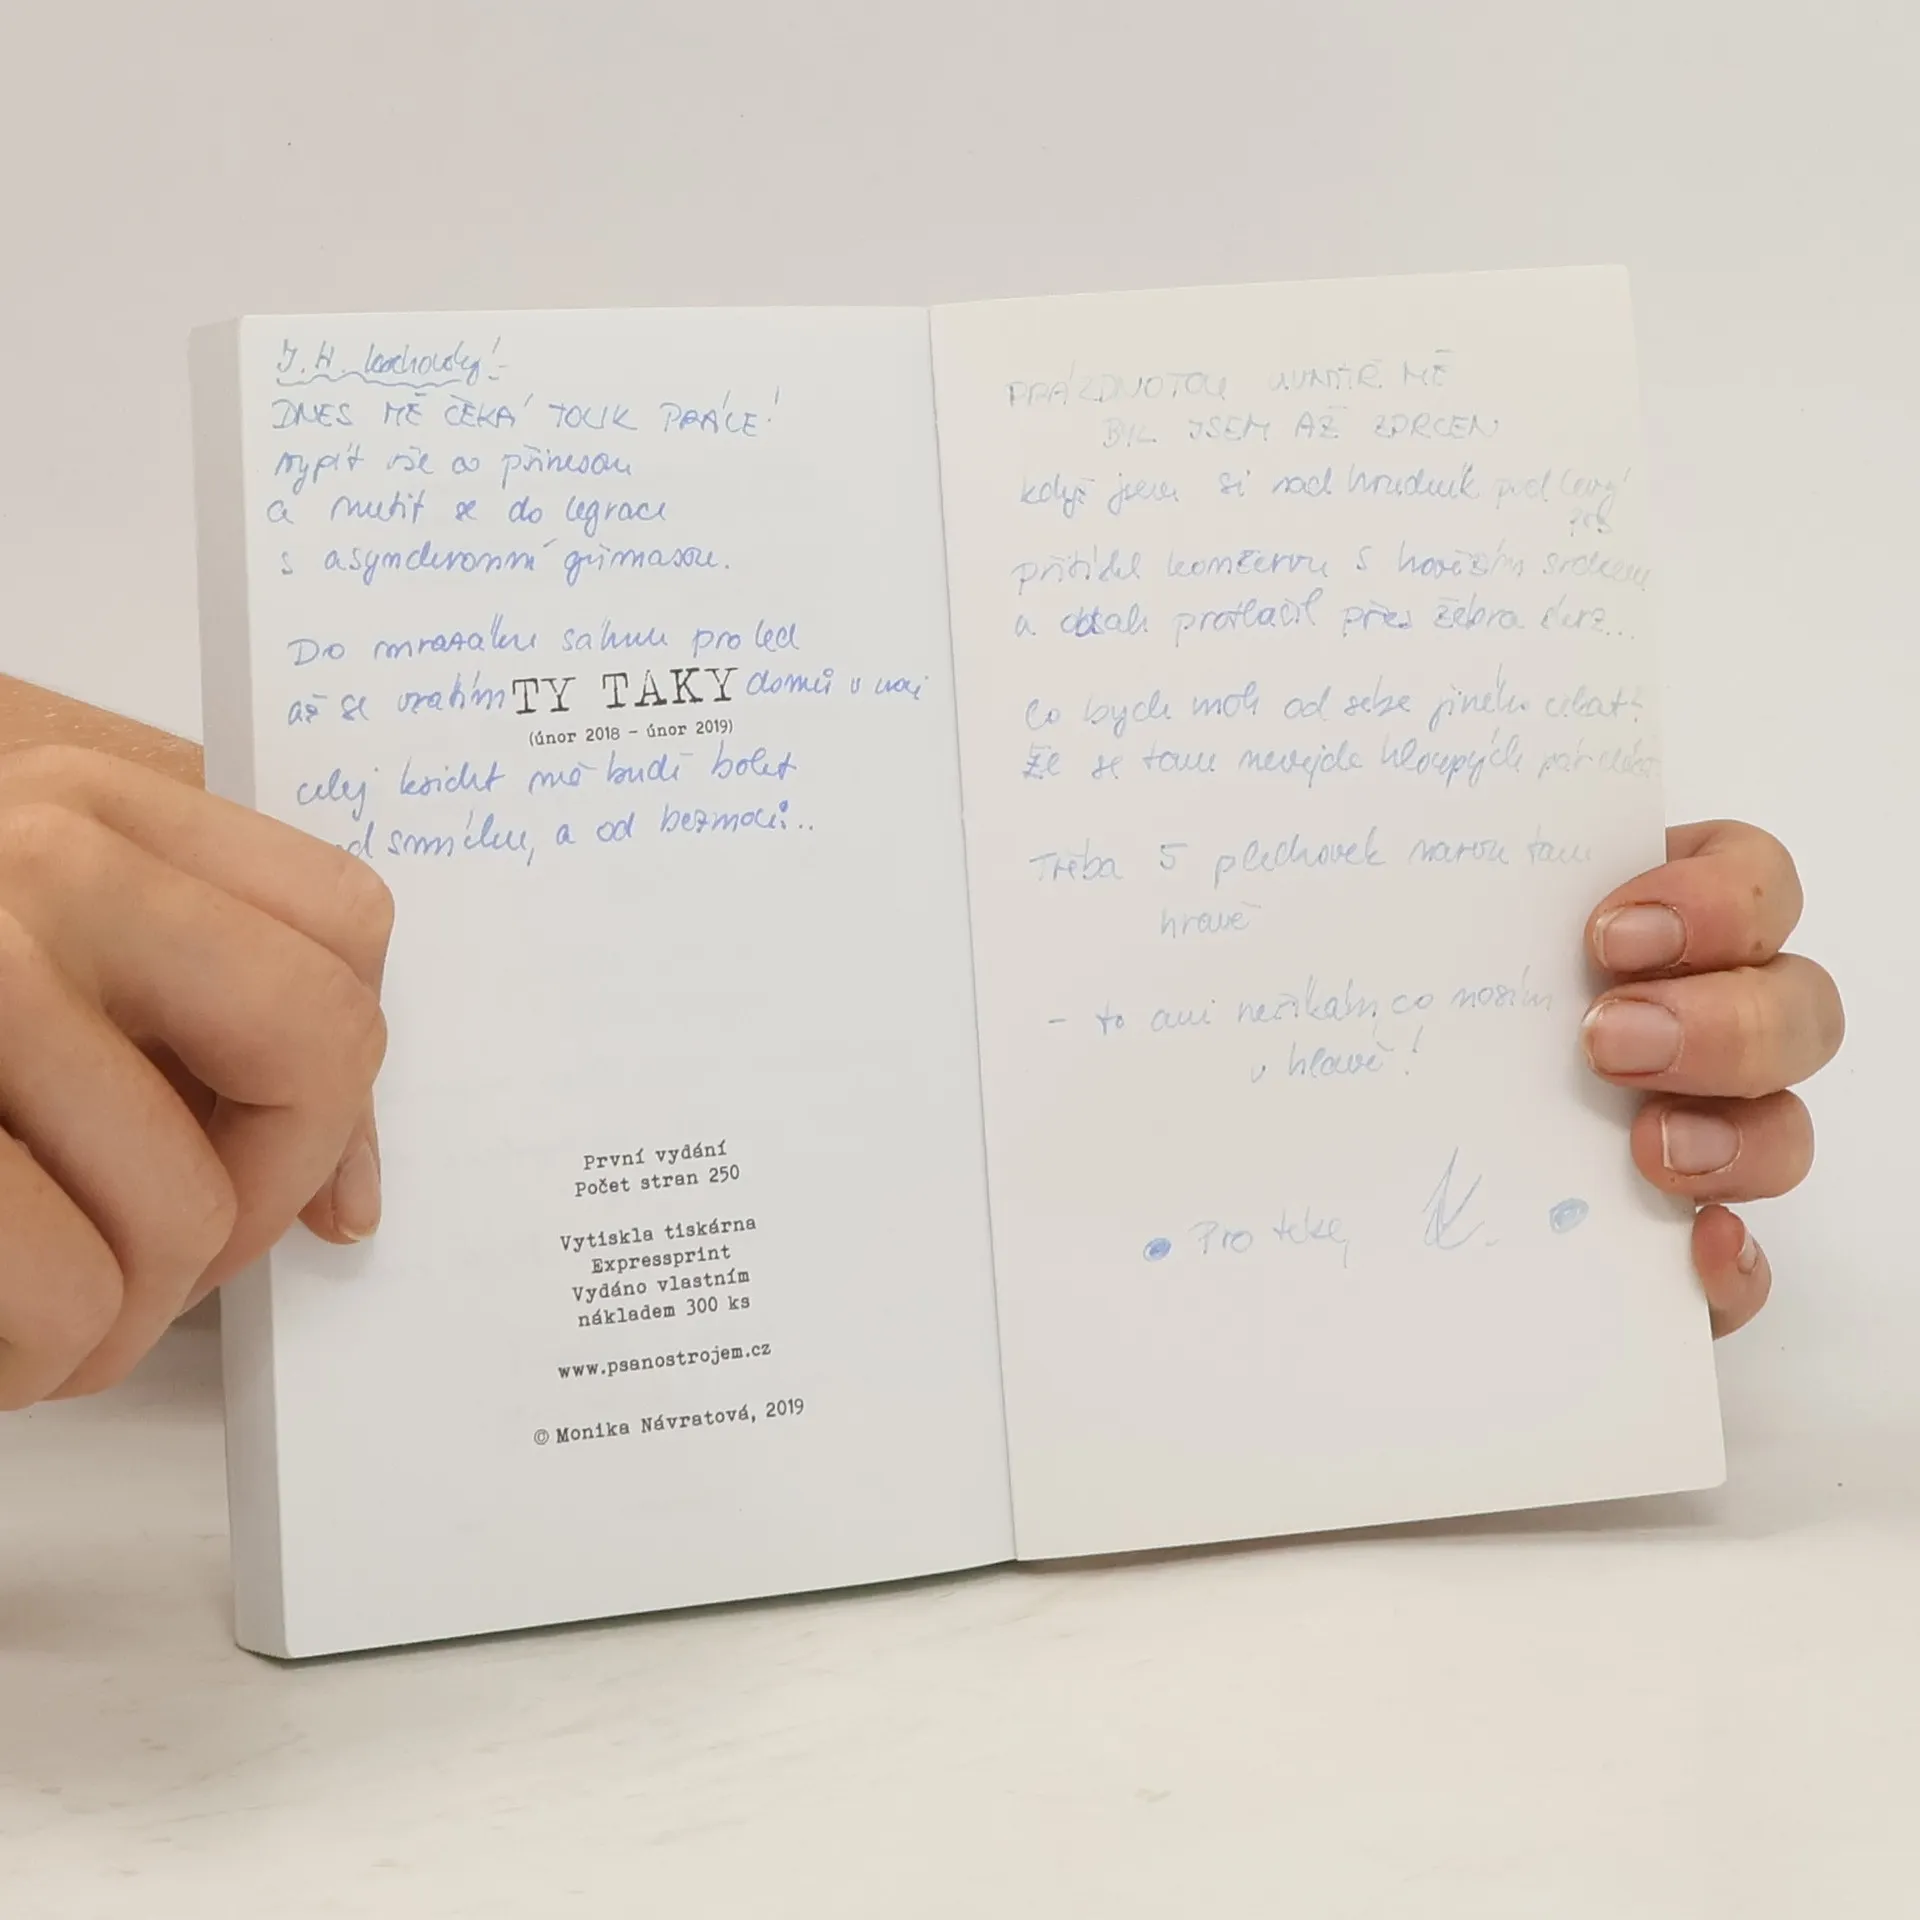 J. H. Krchovský!
DNES MĚ ČEKÁ TOLIK PRÁCE!
vypít vše co přinesou
a nutit se do legrace
s asynchronní grimasou.
Do mrazáku sáhnu pro led
až se vrátím domů v noci
TY TAKY
(únor 2018 – únor 2019)
celej ksicht mě budě bolet
od smíchu, a od bezmoci...
První vydání
Počet stran 250
Vytiskla tiskárna
Expressprint
Vydáno vlastním
nákladem 300 ks
www.psanostrojem.cz
© Monika Návratová, 2019
PRÁZDNOTOU UVNITŘ MĚ
BYL JSEM AŽ ZDRCEN
když jsem si nad hrudník pod levý
přitiskl konzervu s hovězím srdcem
a obsah protlačil přes žebra skrz...
Co bych moh od sebe jiného čekat?
Že se tam nevejde hloupých pár
Třeba 5 plechovek narvu tam
hravě
- to ani neříkám, co nosím
v hlavě!
Pro tebe,